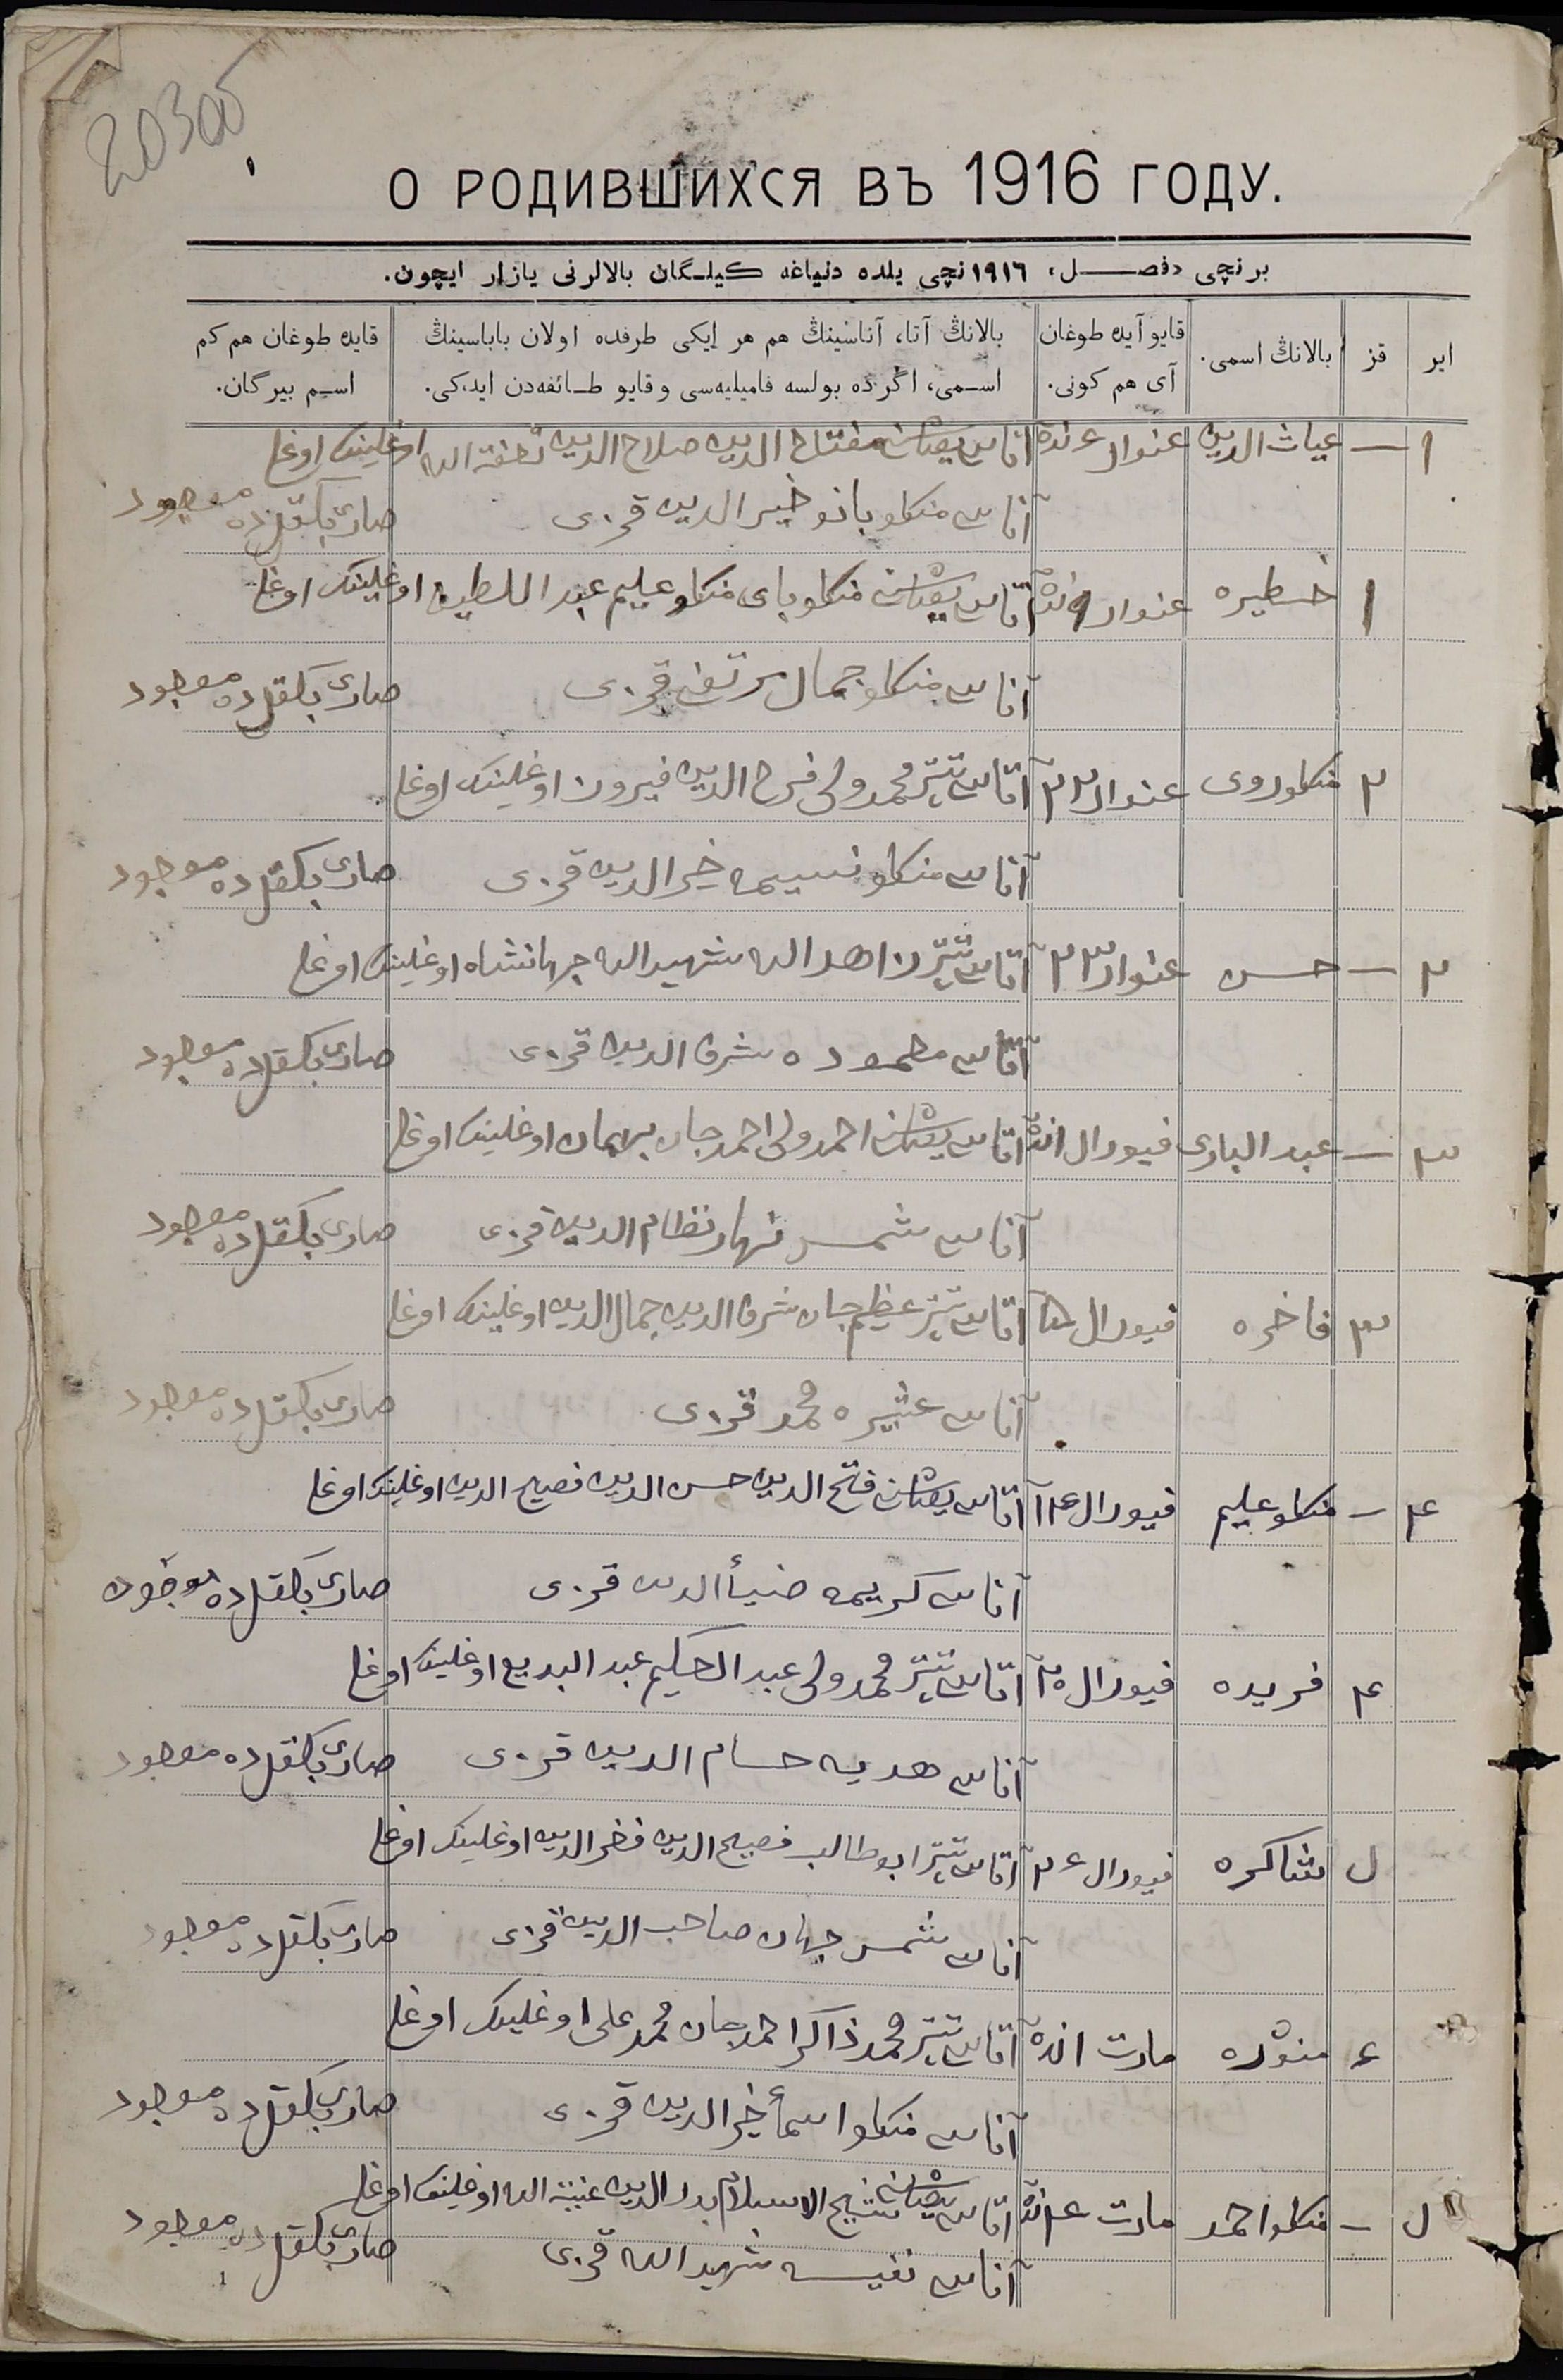 20305
О РОДИВШИХСЯ ВЪ 1916 ГОДУ.
برنچی «فصل» ١٩١٦نچی یلده دنیاغه کیلگان بالالرنی یازار ایچون.
ایر
قز
بالانڭ اسمی.
قایو آیده طوغان آی هم کونی.
بالانڭ آتا، آناسینڭ هم هر ایکی طرفده اولان باباسینڭ اسمی، اگرده بولسه فامیلیه‌سی و قایو طائفه‌دن ایدکی.
قایده طوغان هم کم اسم بیرگان.
١ — غیاث الدین عنوار ٤ نده آتاسی مفتاح الدین صلاح الدین اوغلینک اوغلی
آناسی منکلو بانو خیر الدین قزی صاری بکقلده موجود
١ خطیره عنوار آتاسی منکلو بای منکلو علیم عبد اللطیف اوغلینک اوغلی
آناسی منکلو جمال قزی صاری بکقلده موجود
٢ منکلوروی عنوار ٢٢ آتاسی تپتر محمد ولی فرح الدین فیروز اوغلینک اوغلی
آناسی منکلو نسیمه خیر الدین قزی صاری بکقلده موجود
٢ — حسن عنوار ٢٣ آتاسی تپتر زاهد الله شهید الله جهانشاه اوغلینک اوغلی
آناسی محموده شرف الدین قزی صاری بکقلده موجود
٣ — عبد الباری فیورال ١نده آتاسی احمد ولی احمد جان اوغلینک اوغلی
آناسی شمس نهار نظام الدین قزی صاری بکقلده موجود
٣ فاخره فیورال آتاسی تپتر عظیم جان شرف الدین جمال الدین اوغلینک اوغلی
آناسی محمد قزی صاری بکقلده موجود
٤ — منکلو علیم فیورال ١٤ آتاسی فتح الدین حسن الدین فصیح الدین اوغلینک اوغلی
آناسی کریمه ضیأ الدین قزی صاری بکقلده موجود
٤ فریده فیورال ٢٠ آتاسی تپتر محمد ولی عبد الحکیم عبد البدیع اوغلینک اوغلی
آناسی هدیه حسام الدین قزی صاری بکقلده موجود
شاکره فیورال ٢٤ آتاسی تپتر ابو طالب فصیح الدین فخر الدین اوغلینک اوغلی
آناسی شمس جهان صاحب الدین قزی صاری بکقلده موجود
منوره مارت ١نده آتاسی تپتر محمد ذاکر احمد جان محمد علی اوغلینک اوغلی
آناسی منکلو اسمأ خیر الدین قزی صاری بکقلده موجود
— منکلو احمد مارت ٤نده آتاسی شیخ الاسلام بدر الدین اوغلینک اوغلی
آناسی نفیسه شهید الله قزی صاری بکقلده موجود